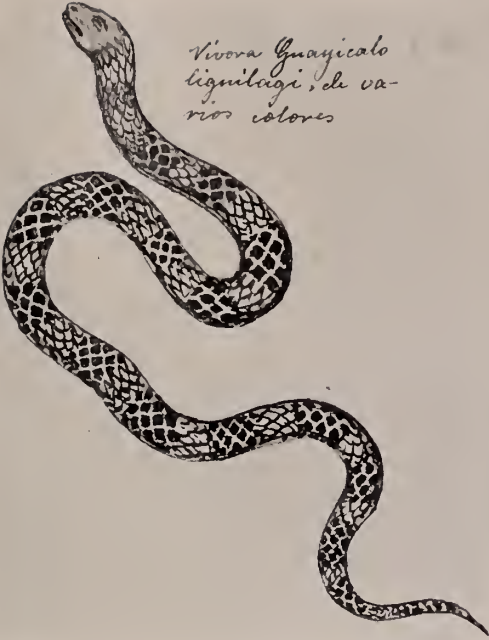 Vívora Guayicalo
lignilagi, de va-
rios colores